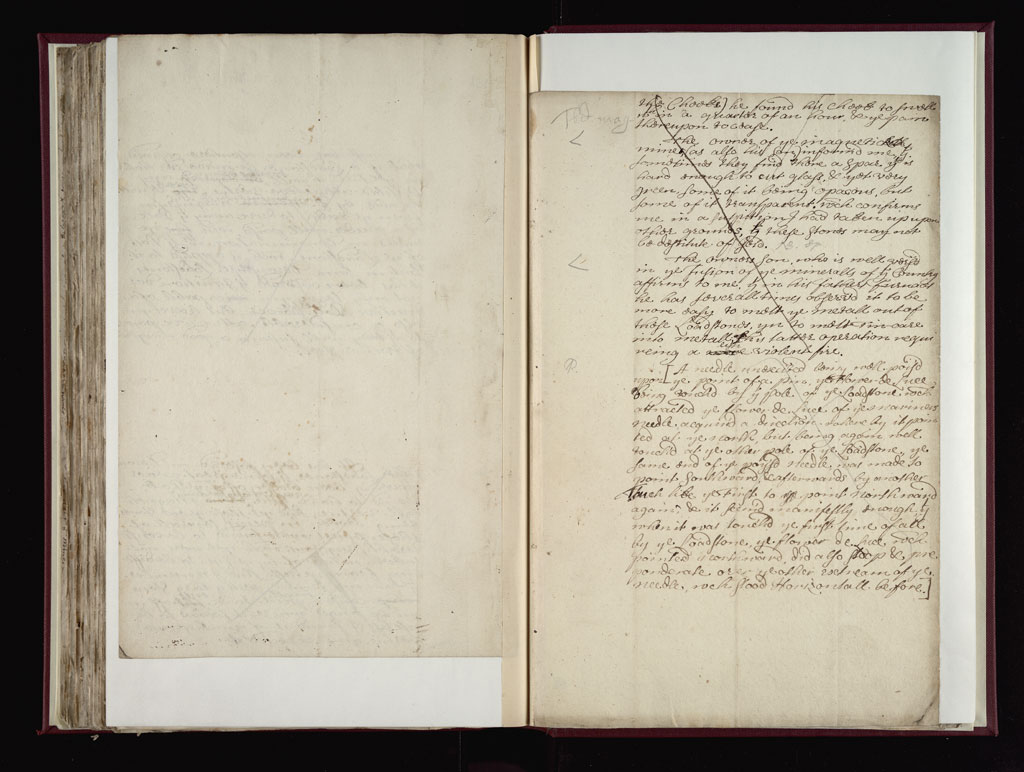 ye Cheeke) he found his cheek to swell
in a quarter of an hour, & ye pain
thereupon to cease.
The owner of ye magnetick
mine (as also his Son) inform'd me, yt
sometimes they find there a spar, yt is
hard enough to cut glass, & yet very
green some of it being opacous, but
some of it transparent. wch confirms
me in a suspition I had taken up upon
other grounds, yt these stones may not
be destitute of Gold.
The owners Son, who is well vers'd
in ye fusion of ye mineralls of yt Country
affirms to me, yt in his fathers furnace
he has severall times observ'd it to be
more easy to melt ye metall out of
those Loadstones, yn to melt tin-oare
into metall, this latter operation requi
reing a more violent fire.
[A needle untouched being well pois'd
upon ye point of a pin, ye flower de luce
being touch'd by yt pole of ye Loadstone, wch
attracted ye flower de luce of ye mariners
needle acquir'd a direction whereby it poin
ted at ye north but being again well
touch'd at ye other pole of ye Loadstone, ye
same end of ye pois'd needle was made to
point Southward, & afterwards by another
Touch like ye first to point northward
again, & it seem'd manifestly enough, yt
when it was touch'd ye first time of all
by ye Loadstone, ye flower de luce, wch
pointed northward, did also stoop & pre
ponderate over ye other extream of ye
needle, wch stood Horizontall before.]